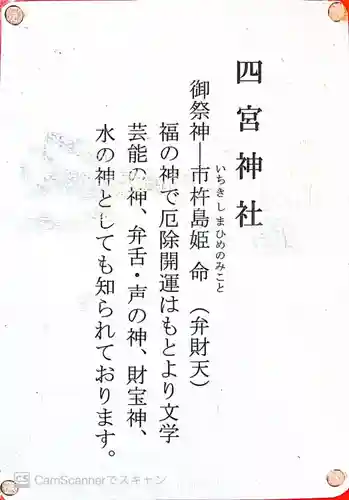 四宮神社
御祭神―市杵島姫 命 (弁財天)
いちきしまひめのみこと
福の神で厄除開運はもとより文学
芸能の神、弁舌・声の神、財宝神、
水の神としても知られております。
CS CamScannerでスキャン